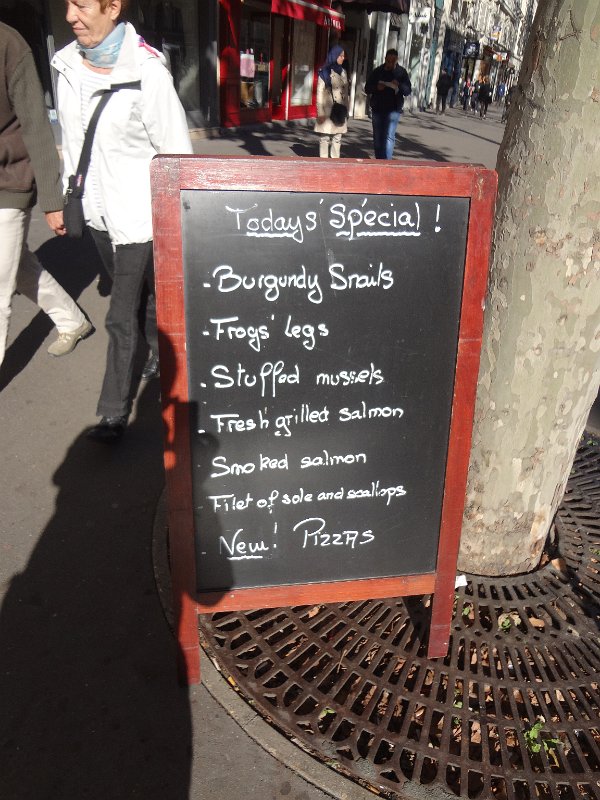 Todays' Spécial !
- Burgundy Snails
- Frogs' legs
- Stuffed mussels
- Fresh grilled salmon
Smoked salmon
- Filet of sole and scallops
- New! Pizzas